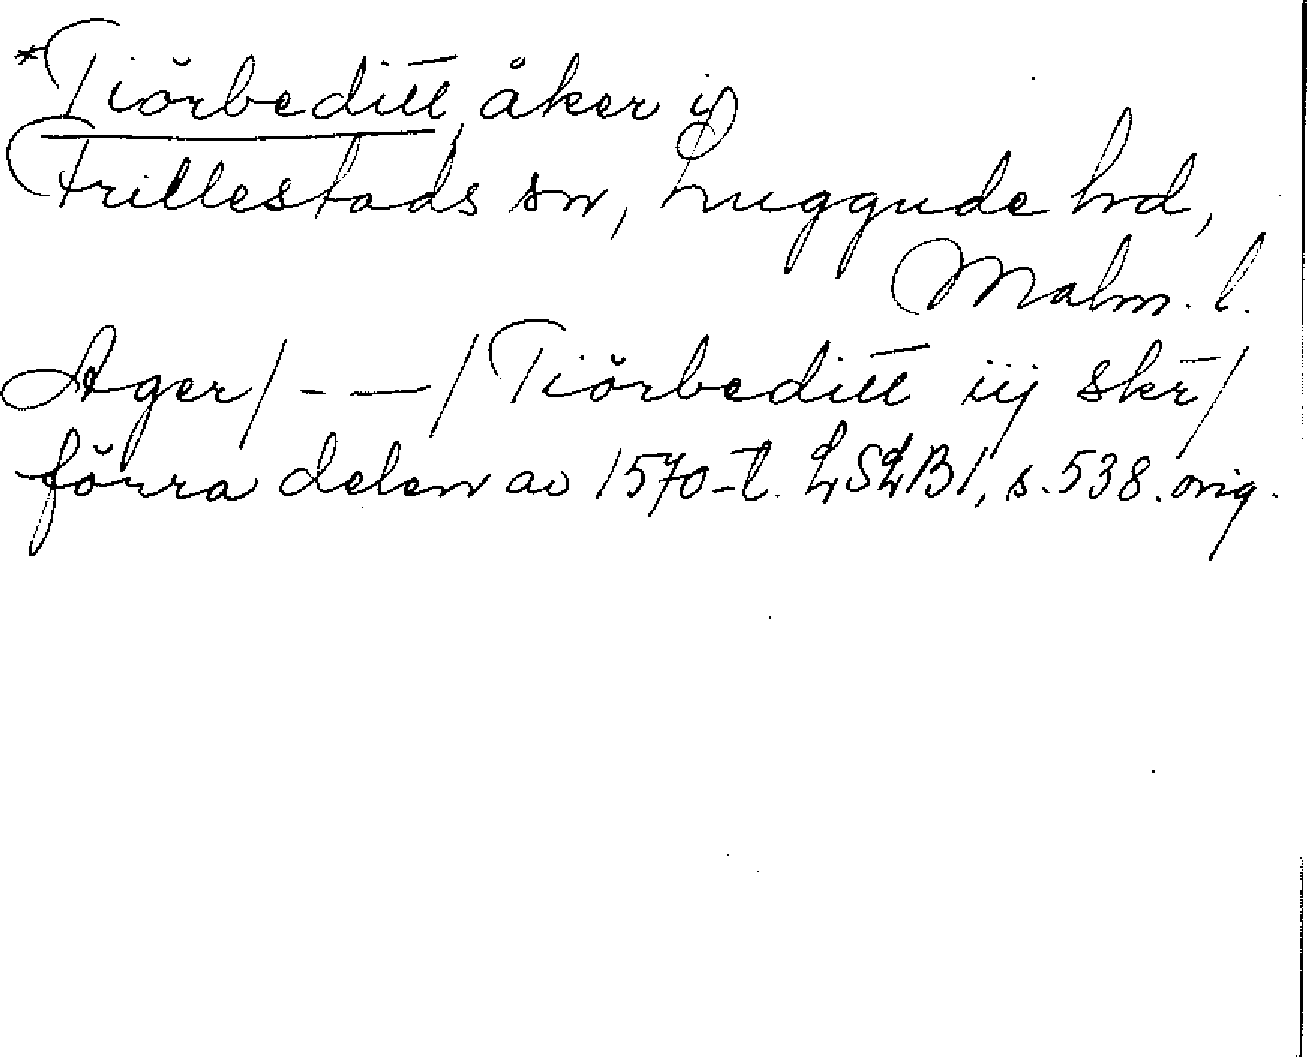 *Tiörbeditt, åker i
Frillestads sn, Luggude hd,
Malm. l.
Ager/ - — / Tiörbeditt iij skr̄/
förra delen av 1570-t. LSLB1, s. 538. orig.